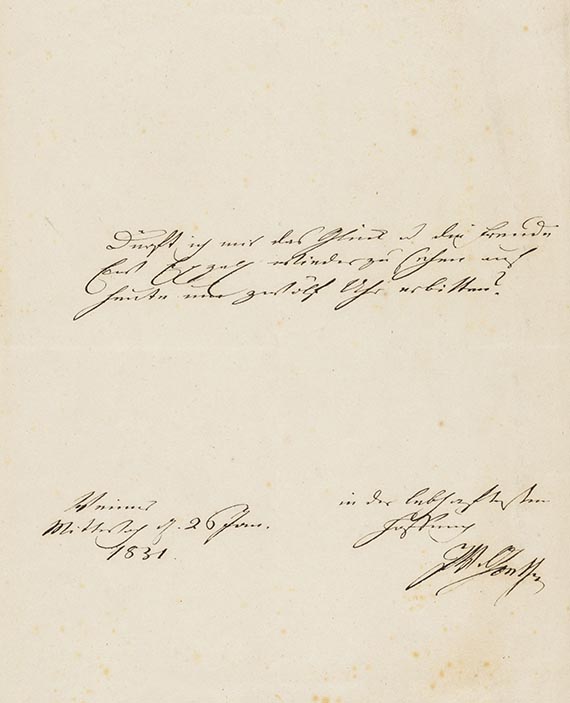 Dürft ich mir das Glück u. die Freude
Ew. wiederzusehen auf
heute um zwölf Uhr erbitten?
Weimar
Mittwoch d. 26 Jan.
1831.
in der lebhaftesten
Hoffnung
JWvGoethe